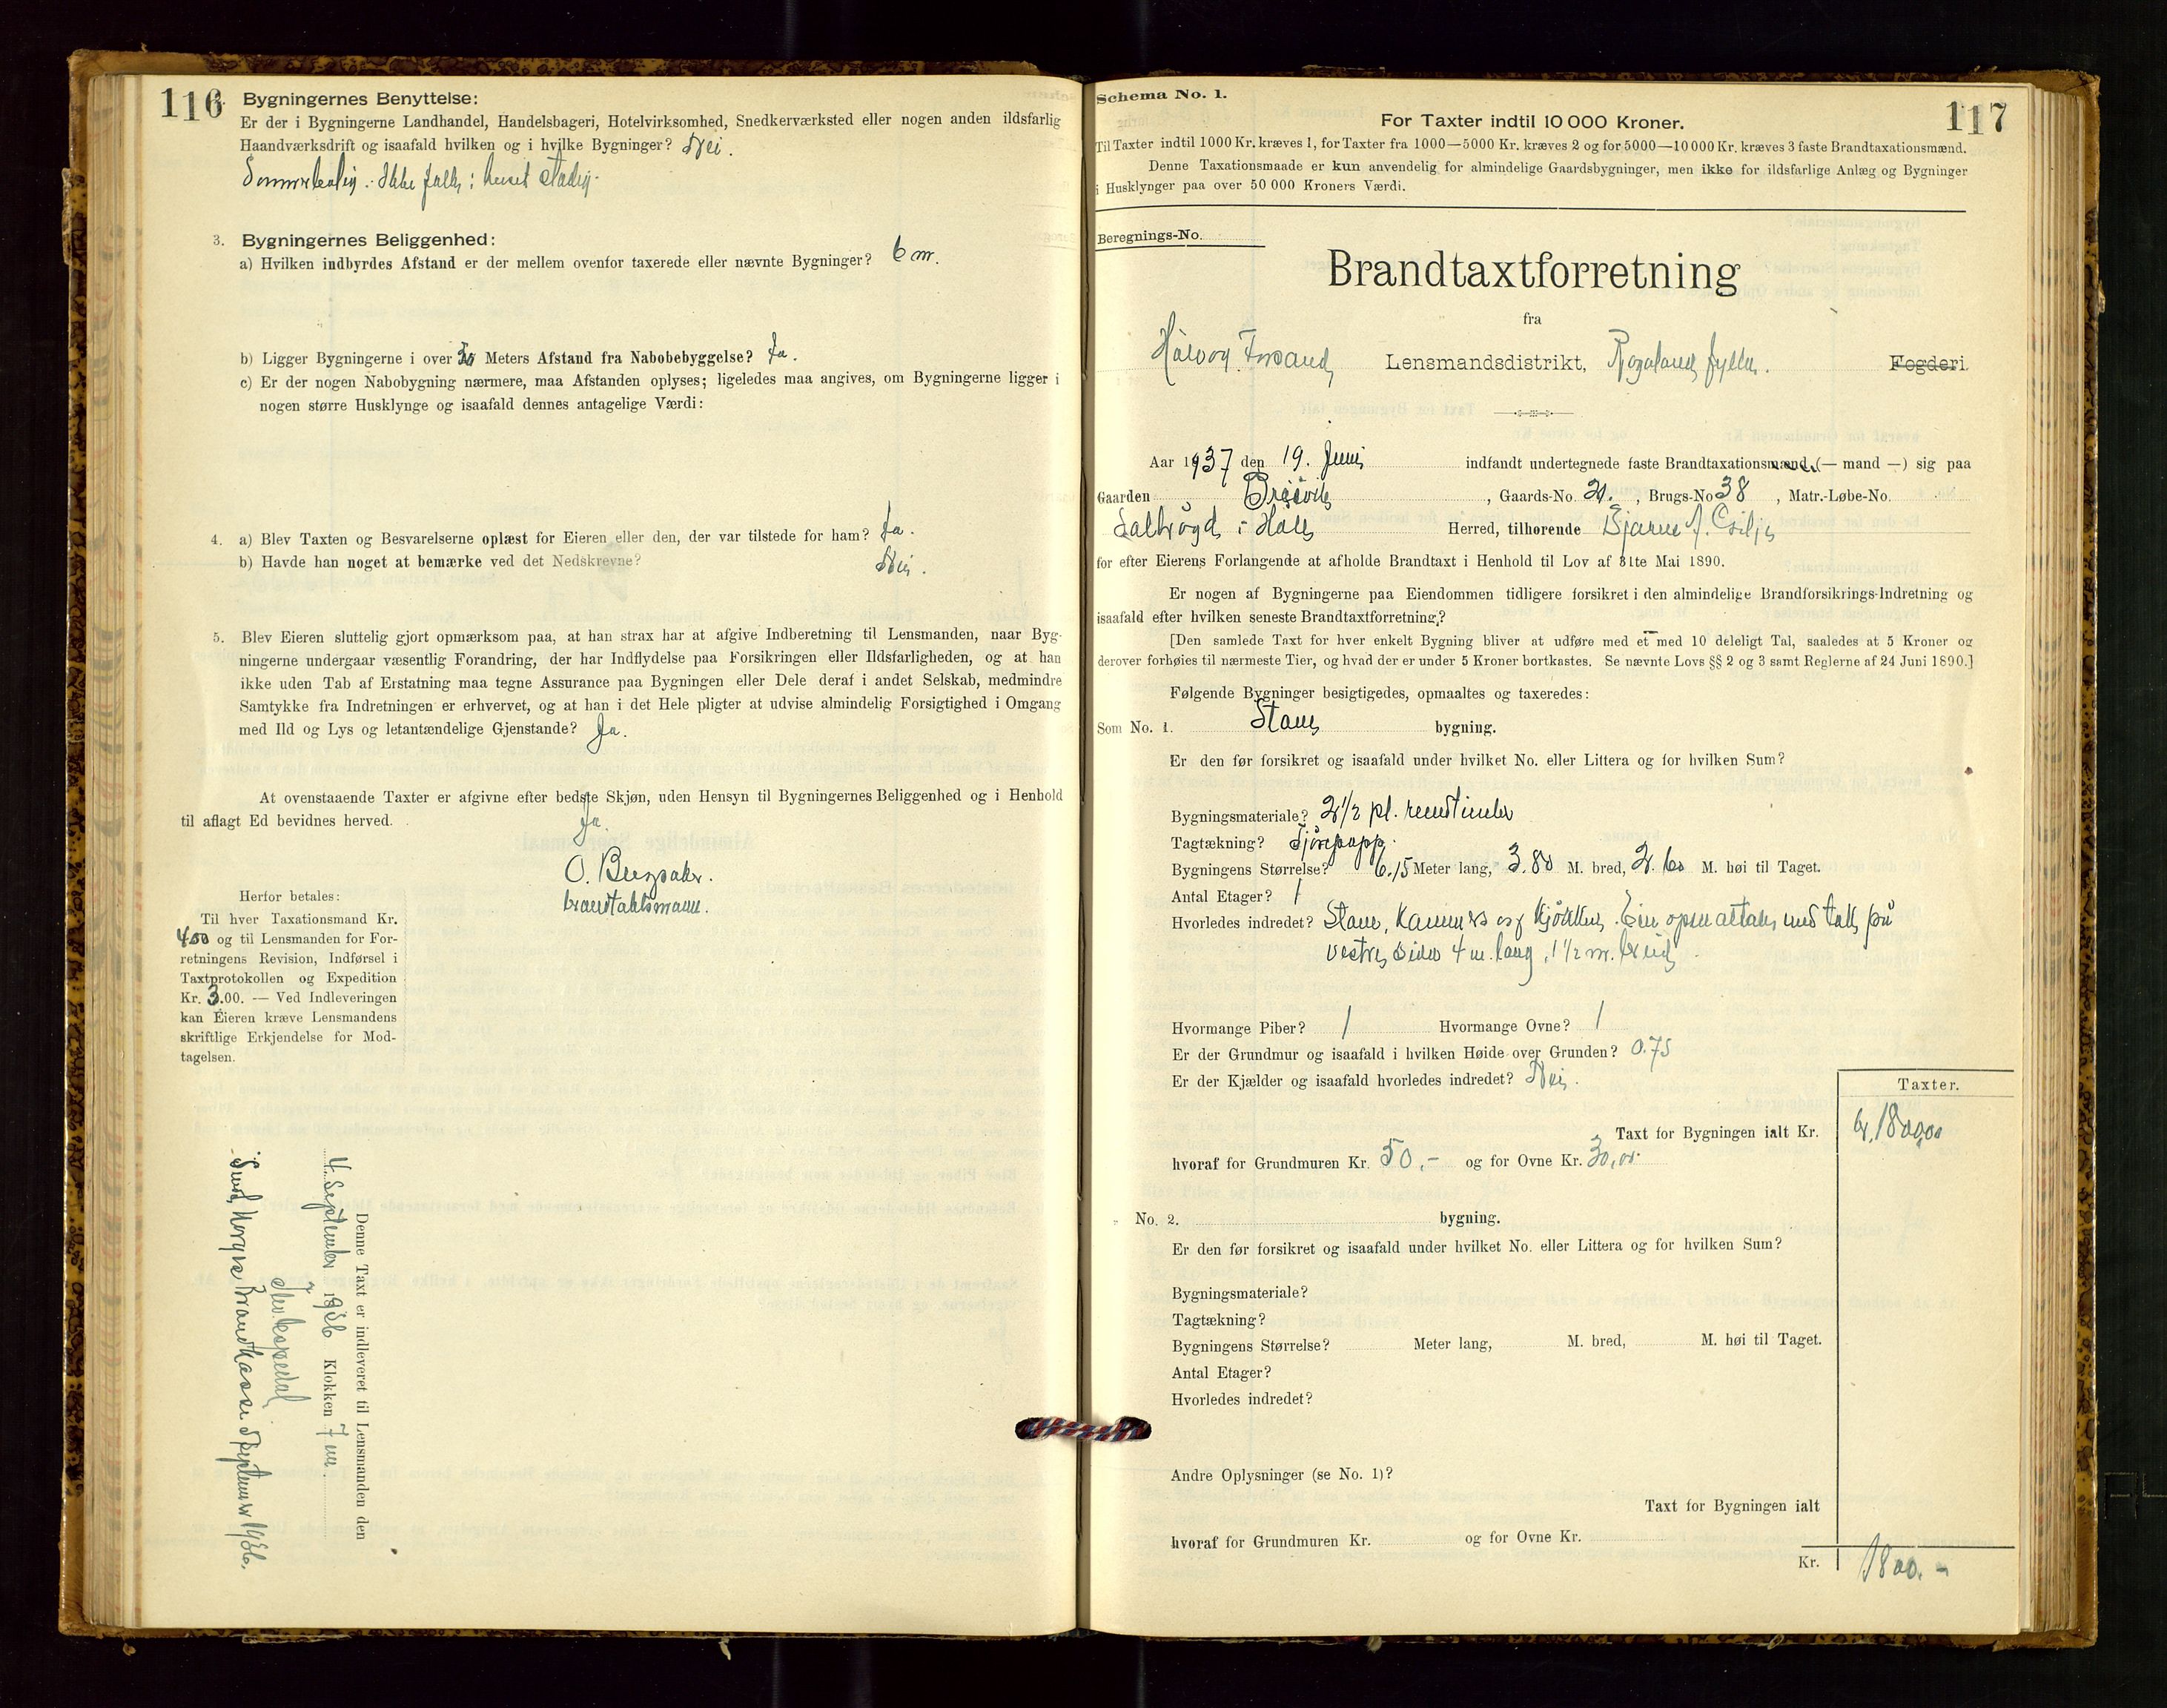 116
2. Bygningernes Benyttelse:
Er der i Bygningerne Landhandel, Handelsbageri, Hotelvirksomhed, Snedkerværksted eller nogen anden ildsfarlig
Haandværksdrift og isaafald hvilken og i hvilke Bygninger? Nei.
Sommerbolig. Ikke folk i huset stadig.
3. Bygningernes Beliggenhed:
a) Hvilken indbyrdes Afstand er der mellem ovenfor taxerede eller nævnte Bygninger? 6 m.
b) Ligger Bygningerne i over Meters Afstand fra Nabobebyggelse? Ja.
c) Er der nogen Nabobygning nærmere, maa Afstanden oplyses; ligeledes maa angives, om Bygningerne ligger i
nogen større Husklynge og isaafald dennes antagelige Værdi:
4. a) Blev Taxten og Besvarelserne oplæst for Eieren eller den, der var tilstede for ham? Ja.
b) Havde han noget at bemærke ved det Nedskrevne? Nei.
5. Blev Eieren sluttelig gjort opmærksom paa, at han strax har at afgive Indberetning til Lensmanden, naar Byg-
ningerne undergaar væsentlig Forandring, der har Indflydelse paa Forsikringen eller Ildsfarligheden, og at han
ikke uden Tab af Erstatning maa tegne Assurance paa Bygningen eller Dele deraf i andet Selskab, medmindre
Samtykke fra Indretningen er erhvervet, og at han i det Hele pligter at udvise almindelig Forsigtighed i Omgang
med Ild og Lys og letantændelige Gjenstande? Ja.
At ovenstaaende Taxter er afgivne efter bedste Skjøn, uden Hensyn til Bygningernes Beliggenhed og i Henhold
til aflagt Ed bevidnes herved.
Ja.
O.
brandtakstmann.
Herfor betales:
Til hver Taxationsmand Kr.
4.00 og til Lensmanden for For-
retningens Revision, Indførsel i
Taxtprotokollen og Expedition
Kr. 3.00. — Ved Indleveringen
kan Eieren kræve Lensmandens
skriftlige Erkjendelse for Mod-
tagelsen.
Denne Taxt er indleveret til Lensmanden den
4. September 1936 Klokken 7 em
Espedal
Sendt Norges Brandkasse September 1936.
117
Schema No. 1.
For Taxter indtil 10 000 Kroner.
Til Taxter indtil 1000 Kr. kræves 1, for Taxter fra 1000—5000 Kr. kræves 2 og for 5000—10 000 Kr. kræves 3 faste Brandtaxationsmænd.
Denne Taxationsmaade er kun anvendelig for almindelige Gaardsbygninger, men ikke for ildsfarlige Anlæg og Bygninger
i Husklynger paa over 50 000 Kroners Værdi.
Beregnings-No.
Brandtaxtforretning
fra
Høle og Forsand Lensmandsdistrikt, Rogaland fylke. Fogderi.
Aar 1937 den 19. Juni indfandt undertegnede faste Brandtaxationsmænd (— mand —) sig paa
Gaarden Breivik, Gaards-No. 21., Brugs-No 38, Matr.-Løbe-No.
i Høle Herred, tilhørende Bjarne
for efter Eierens Forlangende at afholde Brandtaxt i Henhold til Lov af 31te Mai 1890.
Er nogen af Bygningerne paa Eiendommen tidligere forsikret i den almindelige Brandforsikrings-Indretning og
isaafald efter hvilken seneste Brandtaxtforretning?
[Den samlede Taxt for hver enkelt Bygning bliver at udføre med et med 10 deleligt Tal, saaledes at 5 Kroner og
derover forhøies til nærmeste Tier, og hvad der er under 5 Kroner bortkastes. Se nævnte Lovs §§ 2 og 3 samt Reglerne af 24 Juni 1890.]
Følgende Bygninger besigtigedes, opmaaltes og taxeredes:
Som No. 1. Stove bygning.
Er den før forsikret og isaafald under hvilket No. eller Littera og for hvilken Sum?
Bygningsmateriale? 2 1/2 pl.
Tagtækning? Tjørepapp.
Bygningens Størrelse? 6.15 Meter lang, 3.80 M. bred, 2.60 M. høi til Taget.
Antal Etager? 1
Hvorledes indredet? Stove, kammers og kjøkken. Ein open altan med tak på
vestre side 4 m. lang, 1 1/2 m. breid.
Hvormange Piber? 1 Hvormange Ovne? 1
Er der Grundmur og isaafald i hvilken Høide over Grunden? 0.75
Er der Kjælder og isaafald hvorledes indredet? Nei.
Taxter.
Taxt for Bygningen ialt Kr. kr. 1800,00
hvoraf for Grundmuren Kr. 50,- og for Ovne Kr. 30,00
„ No. 2. bygning.
Er den før forsikret og isaafald under hvilket No. eller Littera og for hvilken Sum?
Bygningsmateriale?
Tagtækning?
Bygningens Størrelse? Meter lang, M. bred, M. høi til Taget.
Antal Etager?
Hvorledes indredet?
Andre Oplysninger (se No. 1)?
Taxt for Bygningen ialt
hvoraf for Grundmuren Kr. og for Ovne Kr.
Kr. 1800.-